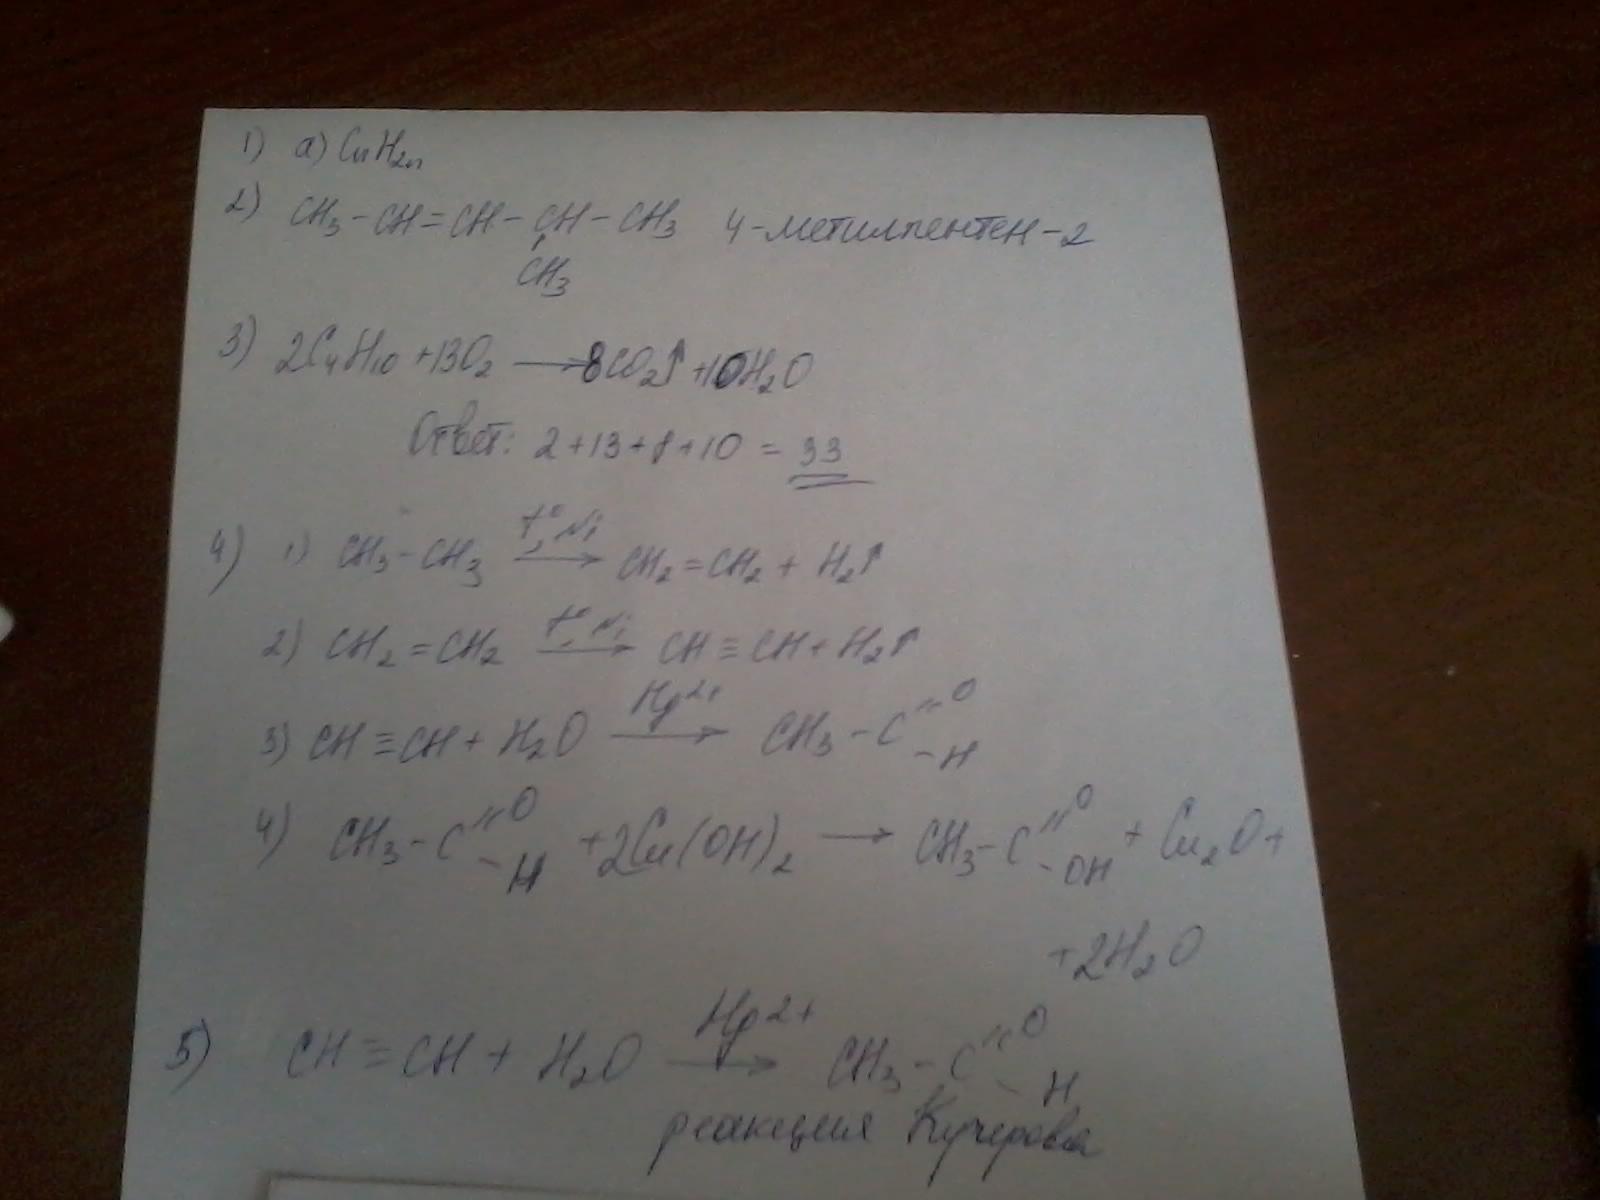 1) а) CnH2n
2) CH3-CH=CH-CH-CH3 4-метилпентен-2
CH3
3) 2C4H10 +13O2 → 8CO2↑ +10H2O
Ответ: 2+13+8+10 = 33
4) 1) CH3-CH3 t°, Ni → CH2=CH2 + H2↑
2) CH2=CH2 t°, Ni → CH≡CH + H2↑
3) CH≡CH + H2O Hg2+ → CH3-C=O -H
4) CH3-C=O -H +2Cu(OH)2 → CH3-C=O -OH + Cu2O+
+2H2O
5) CH≡CH + H2O Hg2+ → CH3-C=O -H
реакция Кучерова